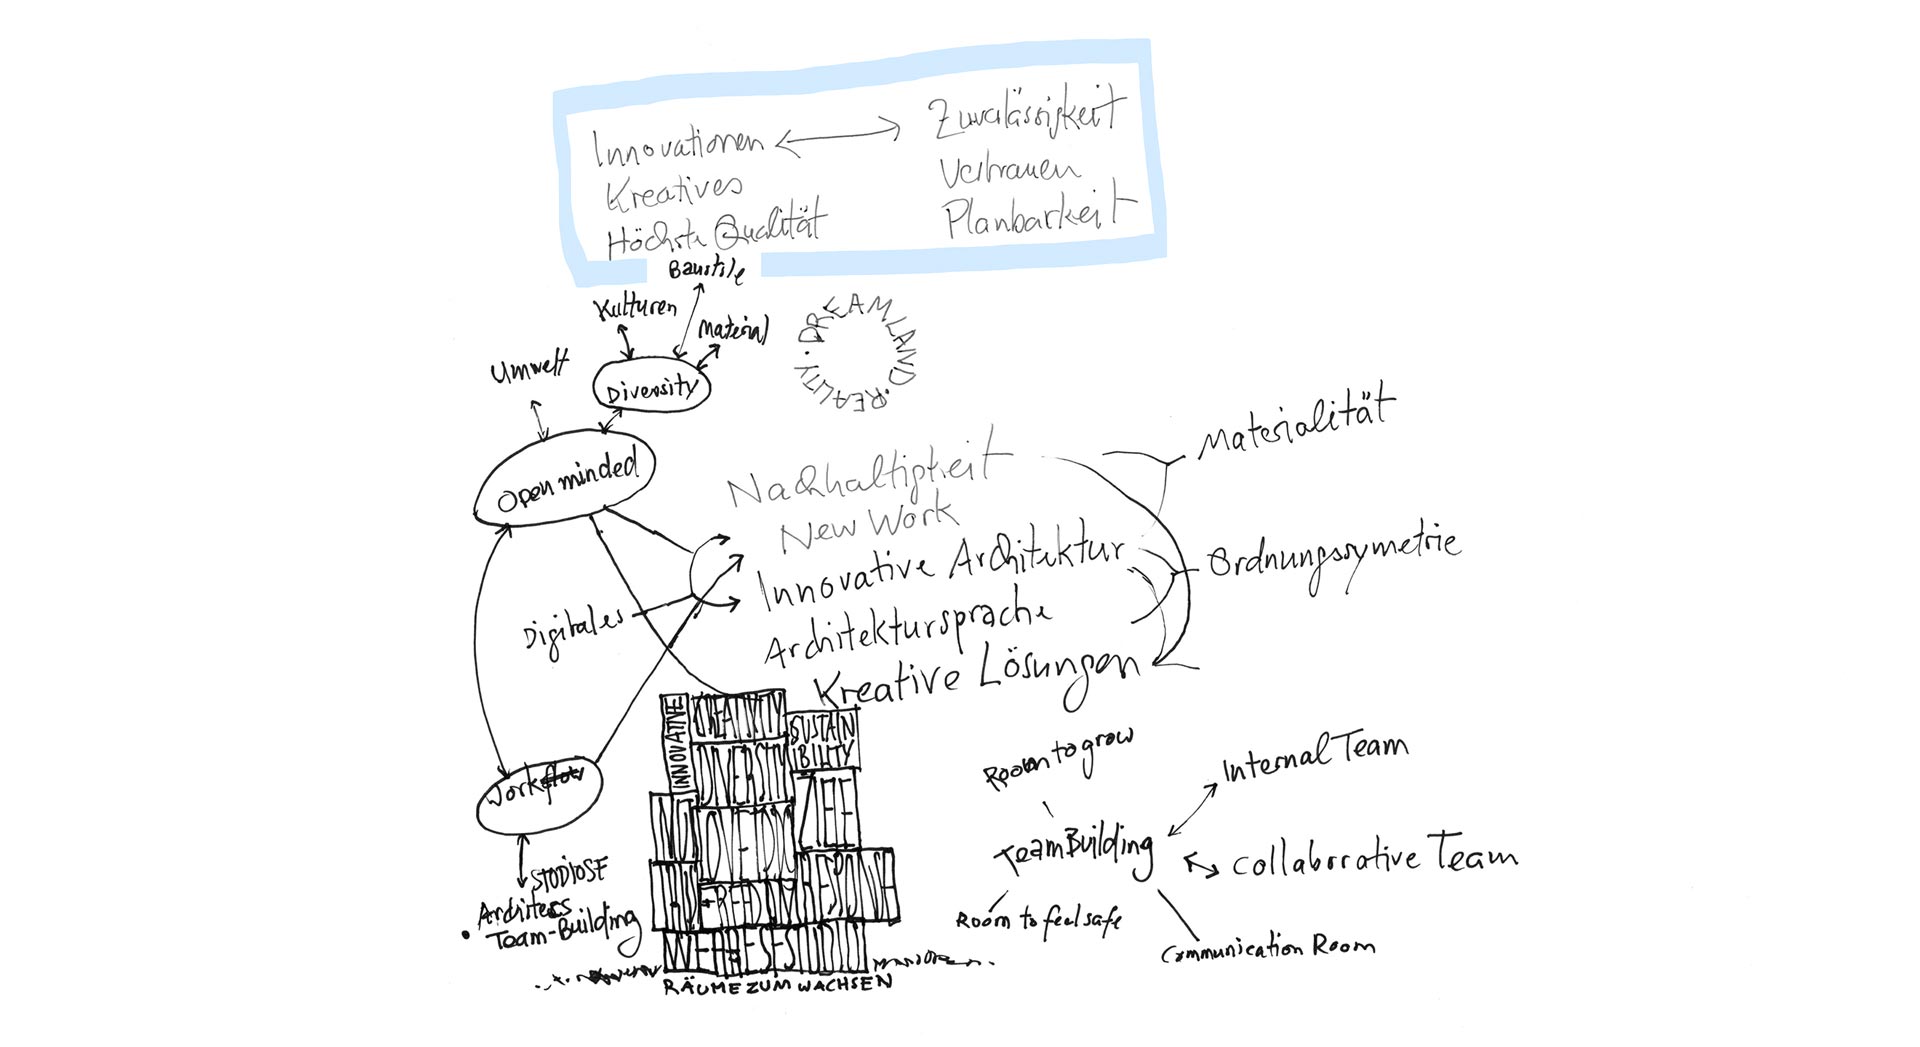 Innovationen
Kreatives
Höchste Qualität
Zuvalässigkeit
Vertrauen
Planbarkeit
Baustile
Kulturen
Material
Umwelt
Diversity
DREAMLAND. REALITY.
Open minded
Nachhaltigkeit
New Work
Innovative Architektur
Architektursprache
Kreative Lösungen
Materialität
Ordnungssymetrie
Digitales
Workflow
STUDIOSF
Architects
Team-Building
INNOVATIVE
CREATIVITY
SUSTAIN
BILITY
DIVERSITY
RÄUME ZUM WACHSEN
Room to grow
Internal Team
TeamBuilding
Collaborrative Team
Room to feel safe
Communication Room